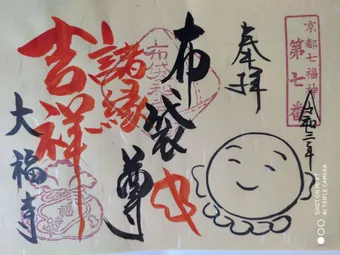 京都七福神
第七番
奉拝
令和三年
布袋尊
諸縁
吉祥
大福寺
SHOT ON MI 9T
AI TRIPLE CAMERA